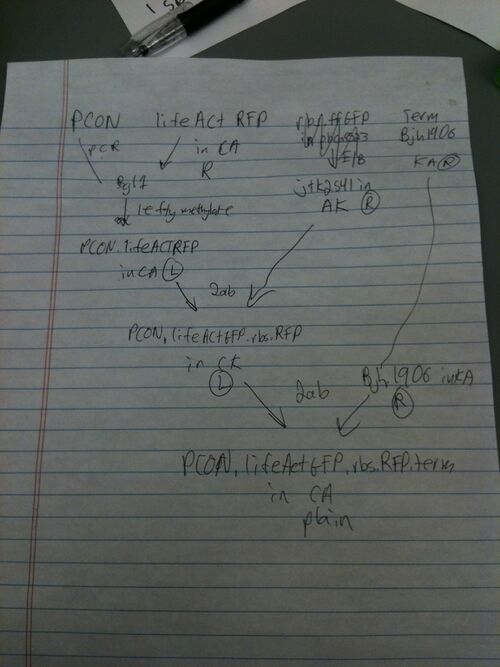 PCON lifeAct RFP
Term
Bjh1906
KA R
PCR
in CA
R
Bgl2
lefty methylate
jtk2541 in
AK R
PCON.lifeACTRFP
in CA L
2ab
PCON.lifeActGFP.rbs.RFP
in CK
L
2ab
Bjh1906 in KA
R
PCON.lifeActGFP.rbs.RFP.term
in CA
plain